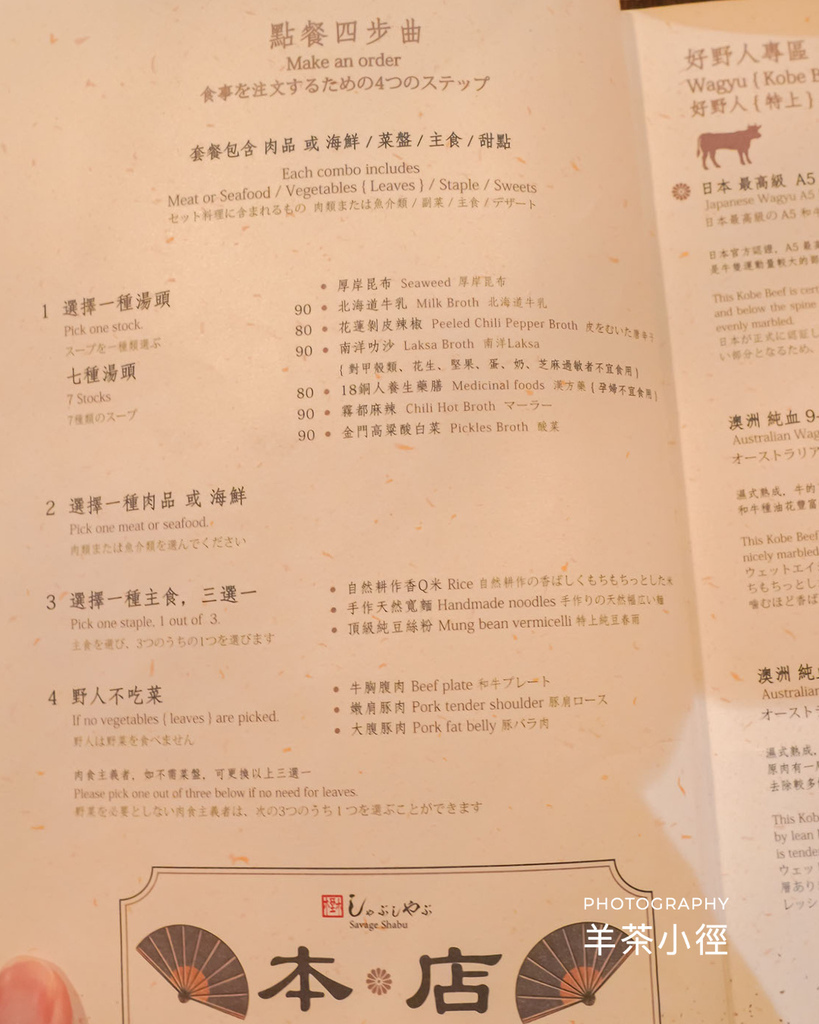 點餐四步曲
Make an order
食事を注文するための4つのステップ
套餐包含 肉品 或 海鮮 / 菜盤 / 主食 / 甜點
Each combo includes
Meat or Seafood / Vegetables { Leaves } / Staple / Sweets
セット料理に含まれるもの 肉類または魚介類 / 副菜 / 主食 / デザート
1 選擇一種湯頭
Pick one stock.
スープを一種類選ぶ
七種湯頭
7 Stocks
7種類のスープ
• 厚岸昆布 Seaweed 厚岸昆布
90 • 北海道牛乳 Milk Broth 北海道牛乳
80 • 花蓮剝皮辣椒 Peeled Chili Pepper Broth 皮をむいた唐辛子
90 • 南洋叻沙 Laksa Broth 南洋Laksa
{ 對甲殼類、花生、堅果、蛋、奶、芝麻過敏者不宜食用 }
80 • 18銅人養生藥膳 Medicinal foods 漢方藥 { 孕婦不宜食用 }
90 • 霧都麻辣 Chili Hot Broth マーラー
90 • 金門高粱酸白菜 Pickles Broth 酸菜
2 選擇一種肉品 或 海鮮
Pick one meat or seafood.
肉類または魚介類を選んでください
3 選擇一種主食，三選一
Pick one staple, 1 out of 3.
主食を選び、3つのうちの1つを選びます
• 自然耕作香Q米 Rice 自然耕作の香ばしくもちもちっとした米
• 手作天然寬麵 Handmade noodles 手作りの天然幅広い麵
• 頂級純豆絲粉 Mung bean vermicelli 特上純豆春雨
4 野人不吃菜
If no vegetables { leaves } are picked.
野人は野菜を食べません
• 牛胸腹肉 Beef plate 和牛プレート
• 嫩肩豚肉 Pork tender shoulder 豚肩ロース
• 大腹豚肉 Pork fat belly 豚バラ肉
肉食主義者，如不需菜盤，可更換以上三選一
Please pick one out of three below if no need for leaves.
野菜を必要としない肉食主義者は、次の3つのうち1つを選ぶことができます
しゃぶしゃぶ
Savage Shabu
本店
好野人專區
Wagyu { Kobe B
好野人 { 特上 }
日本 最高級 A5
Japanese Wagyu A5
日本最高級の A5 和牛
日本官方認證，A5 最高
是牛脊運動量較大的部
This Kobe Beef is cert
and below the spine
evenly marbled.
日本が正式に認証し
い部分となるため、
澳洲 純血 9-
Australian Wag
オーストラリア
濕式熟成，牛的
和牛種油花豐富
This Kobe Beef
nicely marbled
ウェットエイ
ちもちっとし
噛むほど香ば
澳洲 純血
Australian
オーストラ
濕式熟成，
原肉有一層
去除較多
This Kob
by lean
is tende
ウェッ
層あり
レッシ
PHOTOGRAPHY
羊茶小徑